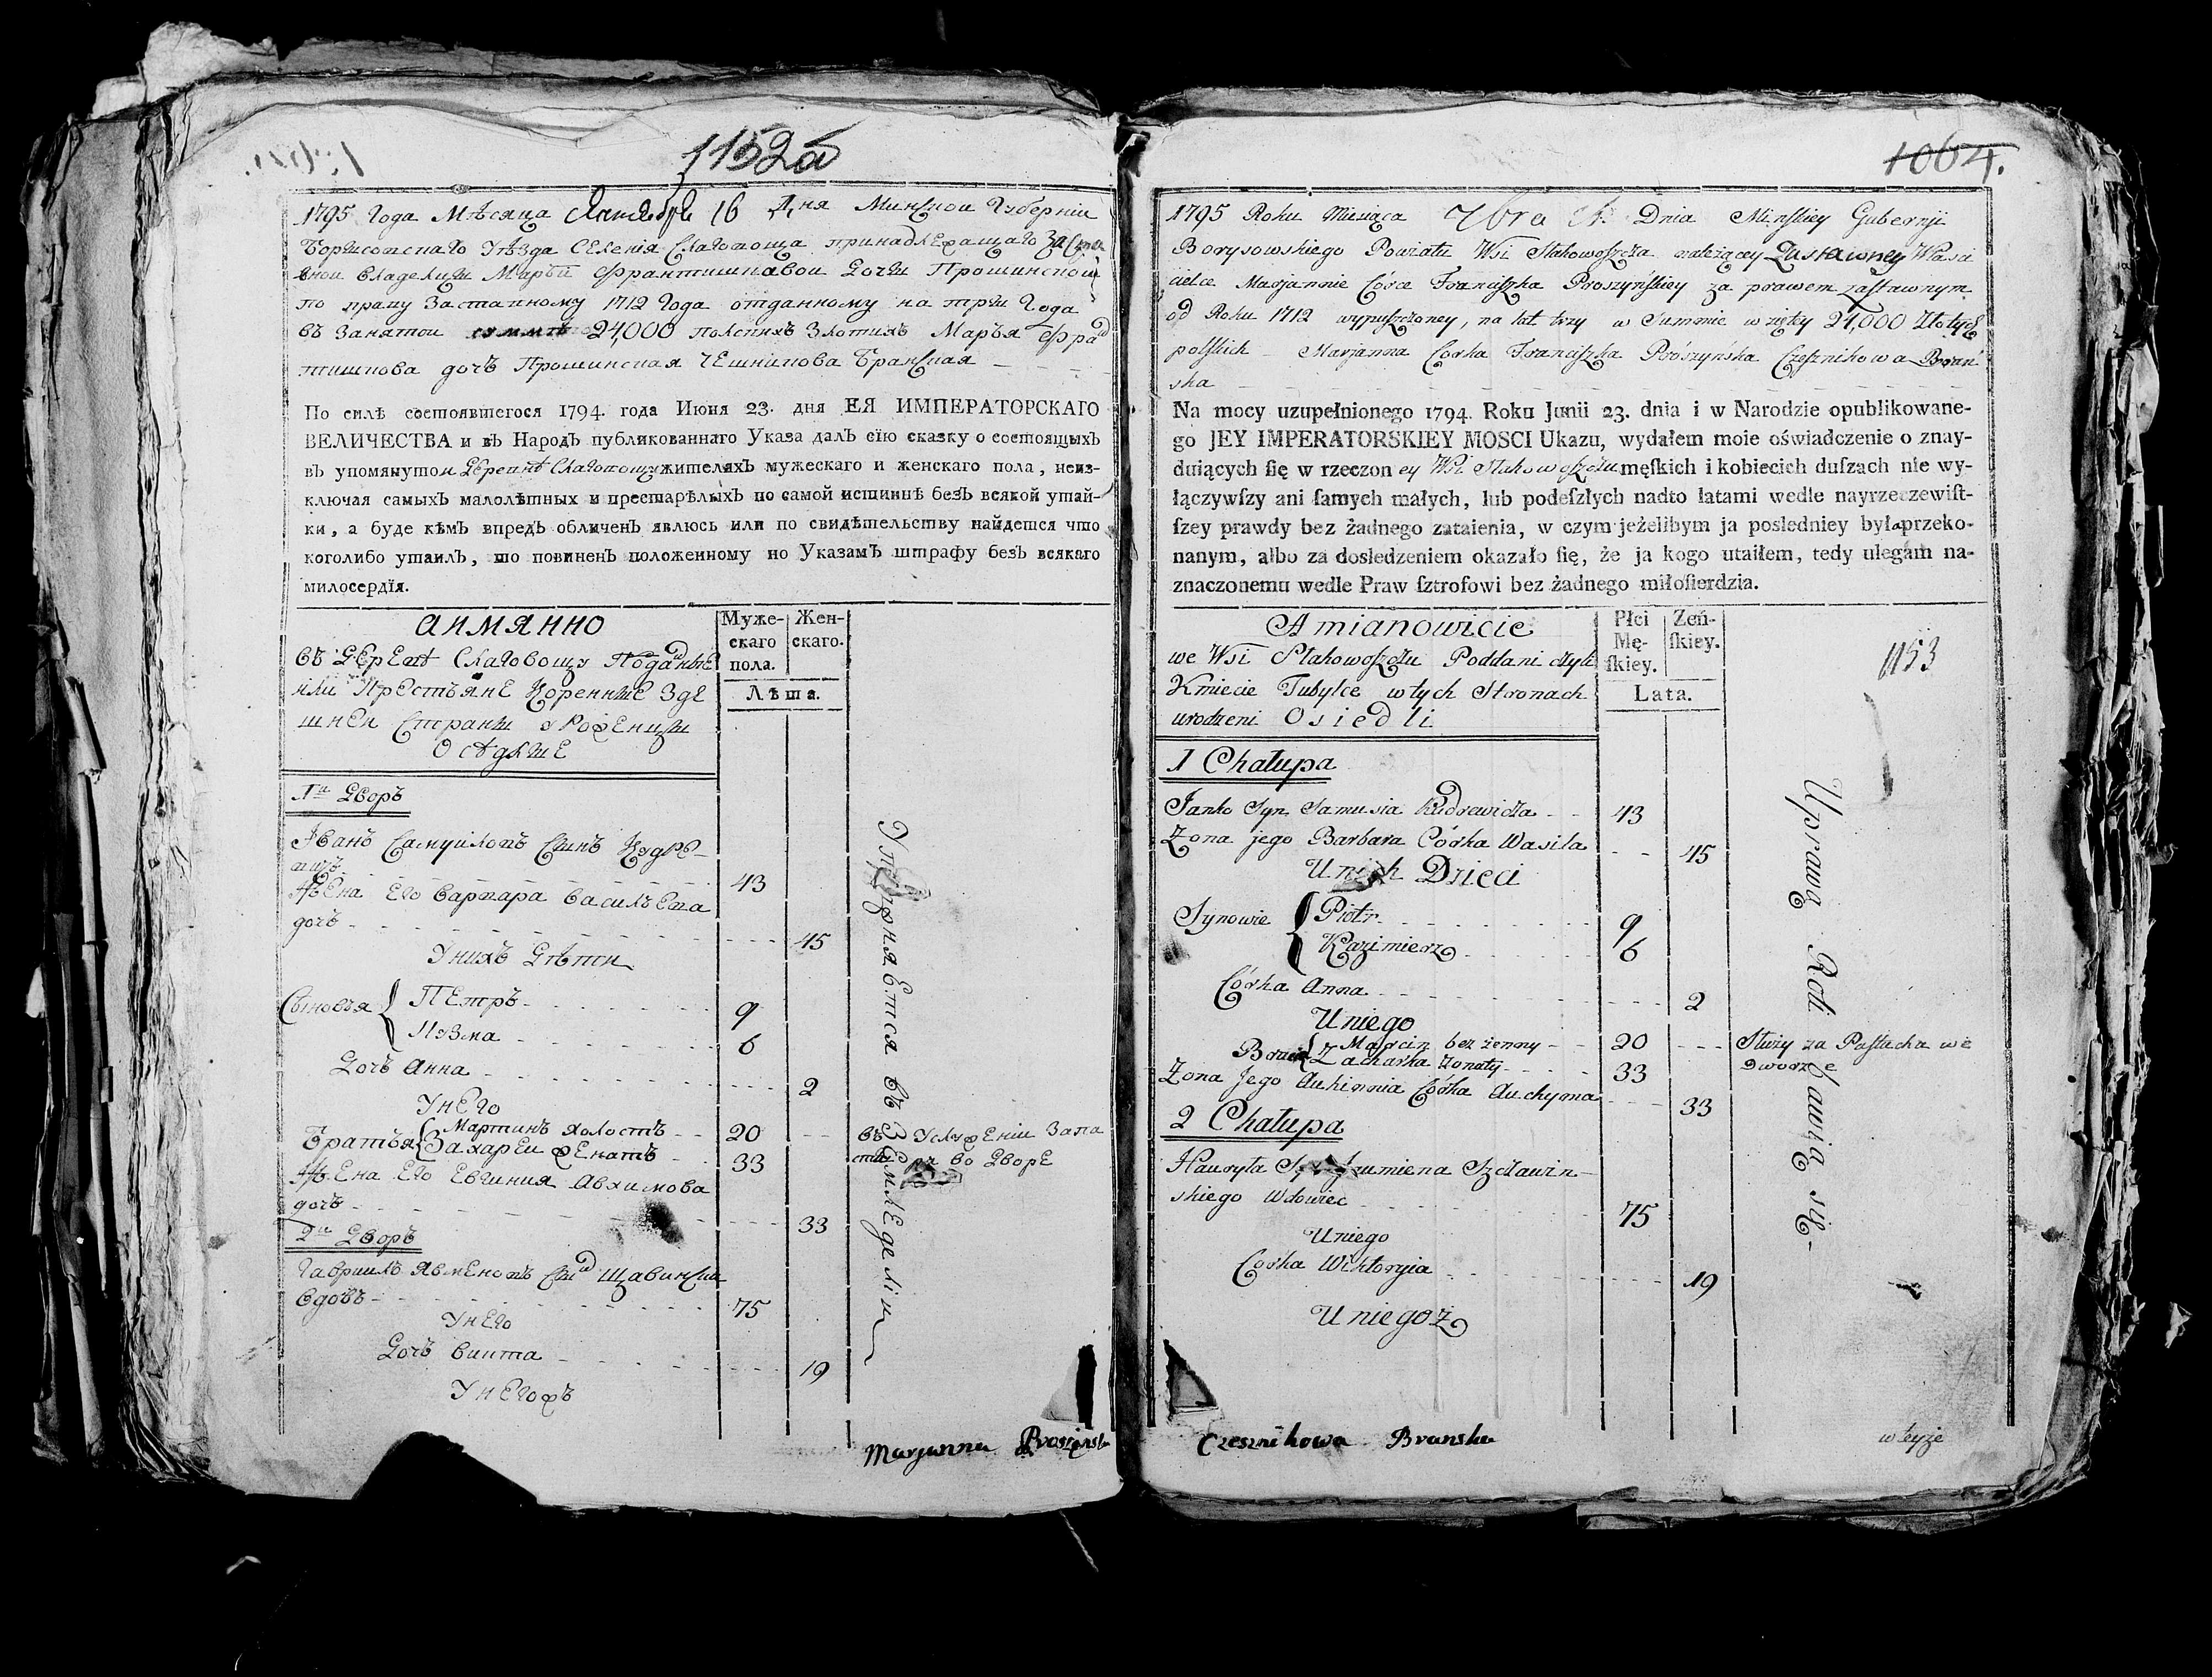 1152а
1795 Года Мѣсяца Сентебря 16 Дня Минской Губерніи
Борисовскаго Уѣзда Селенія Слаговоща принадлежащаго
Владелици Марьи Франтишковой Дочьи Прошинской
по праву Заставному 1712 Года отданному на три Года
въ Занятой суммѣ 24,000 полскихъ Злотихъ Марья
тишкова дочь Прошинская Чешникова Бранская
По силѣ состоявшегося 1794. года Июня 23. дня ЕЯ ИМПЕРАТОРСКАГО
ВЕЛИЧЕСТВА и въ Народъ публикованнаго Указа далъ сїю сказку о состоящыхъ
въ упомянутой Деревнѣ жителяхъ мужескаго и женскаго пола, неиз-
ключая самыхъ малолѣтныхъ и престарѣлыхъ по самой истиннѣ безъ всякой утай-
ки, а буде кѣмъ впредъ обличенъ явлюсь или по свидѣтельству найдется что
коголибо утаилъ, то повиненъ положенному по Указамъ штрафу безъ всякаго
милосердїя.
Аимянно
въ Деревнѣ Поданые
или Крестьяне Коренные Зде
шней Страны урожденцы
Осѣдлые
Муже-
скаго
пола.
Жен-
скаго.
Лѣта.
1й Дворъ
Иванъ Самуиловъ Сынъ Кудре-
вичъ 43
Жена Его Варвара Василѣва
дочь 45
У нихъ Дѣти
Сыновья { Петръ 9
Кузма 6
Дочь Анна 2
У него
Братья { Мартинъ холостъ 20 въ Услуженіи За па
Захареи женатъ 33 во Дворе
Жена Его Евгиния Авхимова
дочь 33
2й Дворъ
Гавриилъ Явменовъ Сынъ
Вдовъ 75
У него
Дочь Викта 19
У негожъ
Упражняется въ Земледелїи
Marjanna Proszynska
1064.
1795 Roku Miesiąca 7bra Dnia Minskiey Gubernji
Borysowskiego Powiatu Wsi Stahowoſzcża należącey Zastawney Wlasci
cielce Marjannie Córce Franciſzka Proszyńskiey za prawem zaſtawnym
od Roku 1712 wypuſzcżoney, na lat trzy w Summie wziętey 24,000 Złotych
polſkich Marjanna Corka Franciſzka Prószyńska Czesznikowa Brań
ska
Na mocy uzupełnionego 1794. Roku Junii 23. dnia i w Narodzie opublikowane-
go JEY IMPERATORSKIEY MOSCI Ukazu, wydałem moie oświadczenie o znay-
duiących ſię w rzeczoney Wsi Stahowoſzcżu męſkich i kobiecich duſzach nie wy-
łączywſzy ani ſamych małych, lub podeſzłych nadto latami wedle nayrzeczewiſt-
ſzey prawdy bez żadnego zataienia, w czym jeżelibym ja posledniey była przeko-
nanym, albo za dosledzeniem okazało ſię, że ja kogo utaiłem, tedy ulegam na-
znaczonemu wedle Praw ſztrofowi bez żadnego miłoſierdzia.
Amianowicie
we Wsi Stahowoſzcżu Poddani cżyli
Kmiecie Tubylce w tych Stronach
urodzeni Osiedli
Płci
Mę-
ſkiey.
Żeń-
ſkiey.
Lata.
1153
1 Chałupa
Janko Syn Samusia Kudrewicża 43
Żona jego Barbara Córka Wasila 45
U nich Dzieci
Synowie { Piotr 9
Kazimierz 6
Córka Anna 2
U niego
Bracia { Marcin bez żenny 20 Służy za Paſtucha we
Zacharka żonaty 33 Dworze
Żona Jego Auhinnia Córka Auchyma 33
2 Chałupa
Hauryła Syn Jaumiena Szcżawin-
skiego Wdowiec 75
U niego
Corka Wiktoryia 19
U niegoż
Uprawą Roli bawią się
Czesznikowa Branska
w teyże